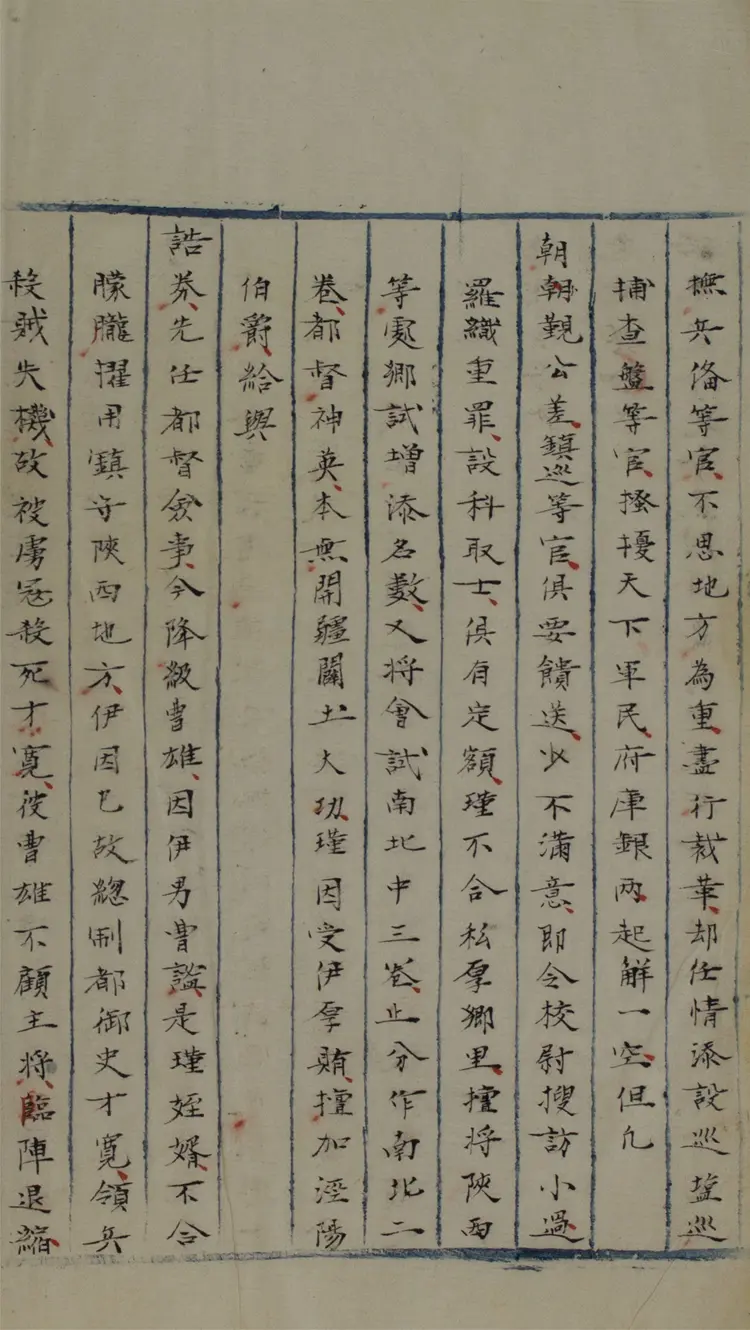 撫兵俻等官不思地方為重盡行裁革却任情添設巡塩巡
捕查盤等官搔擾天下軍民府庫銀兩起解一空但凢
朝朝覲公差鎮巡等官俱要饋送少不滿意即令校尉搜訪小過
羅織重罪設科取士俱有定額瑾不合私厚鄉里擅將陝西
等處鄉試增添名數又將會試南北中三卷止分作南北二
卷都督神英本無開疆闢土大功瑾因受伊厚賄擅加涇陽
伯爵給與
誥券先任都督僉事今降級曹雄因伊男曹謐是瑾姪婿不合
朦朧擢用鎮守陝西地方伊因已故總制都御史才寬領兵
殺賊失機故被虜寇殺死才寬彼曹雄不顧主將臨陣退縮